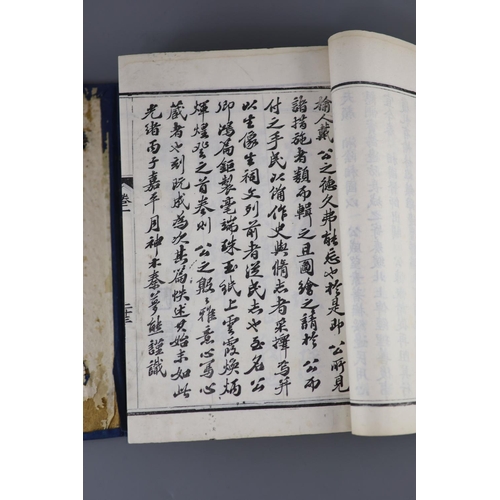 榆人戴 公之德久弗能忘也於是即 公所見
諸措施者類而輯之且圖繪之請於 公而
付之手民以備作史與脩志者采擇焉弁
以生像生祠文列前者從民志也至名公
卿鴻篇鉅製毫端珠玉紙上雲霞煥炳
輝煌登之首卷則 公之殷〻雅意心寫心
藏者也刻既成為次其篇帙述其始末如此
光緒丙子嘉平月神木秦夢熊謹識
卷一
二十三